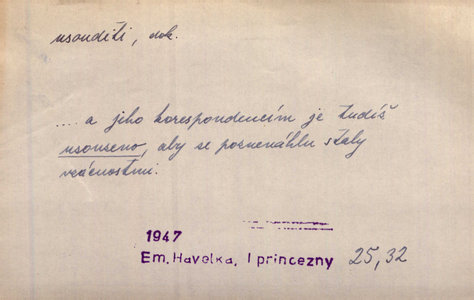 usouditi, dok.
.... a jeho korespondencím je tudíž
usouzeno, aby se poznenáhlu staly
vzácnostmi.
1947
Em. Havelka, I princezny 25, 32